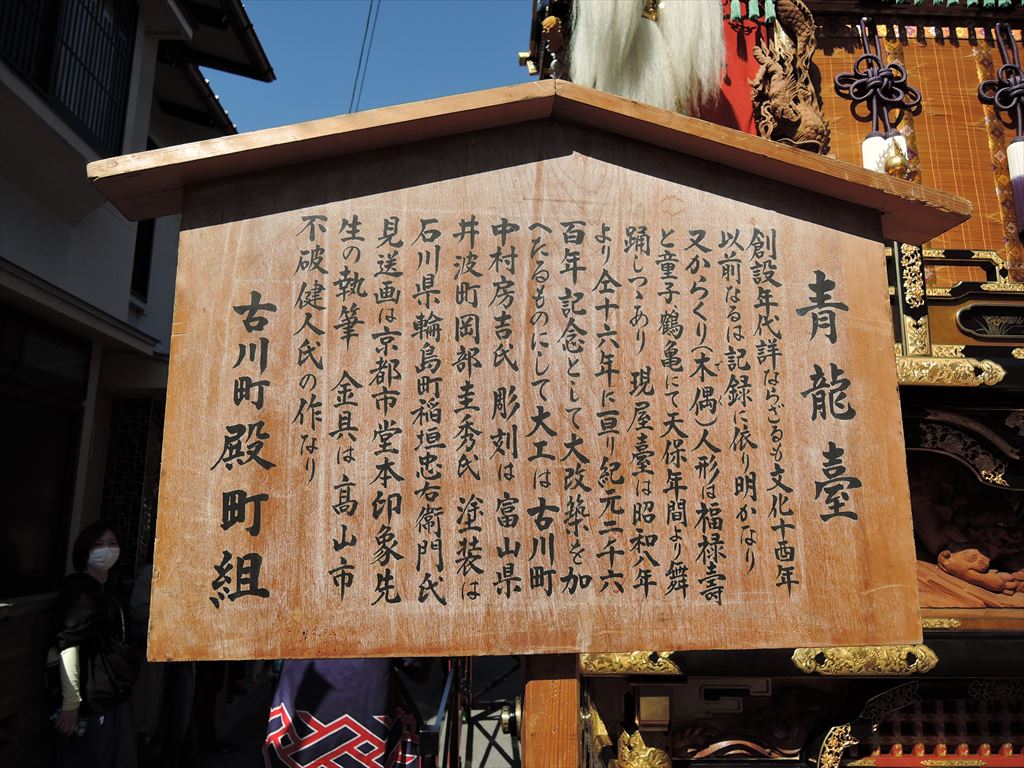 青龍臺
創設年代詳ならざるも文化十酉年
以前なるは記録に依り明かなり
又からくり(木偶)人形は福禄壽
と童子鶴亀にて天保年間より舞
踊しつゝあり 現屋臺は昭和八年
より仝十六年に亘り紀元二千六
百年記念として大改築を加
へたるものにして大工は古川町
中村房吉氏 彫刻は富山県
井波町岡部圭秀氏 塗装は
石川県輪島町稲垣忠右衛門氏
見送画は京都市堂本印象先
生の執筆 金具は髙山市
不破健人氏の作なり
古川町殿町組